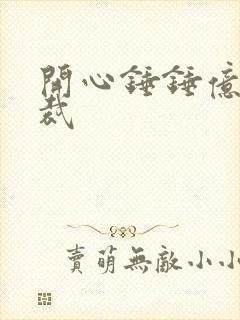 開心錘錘億
裁
賣萌無敵小小